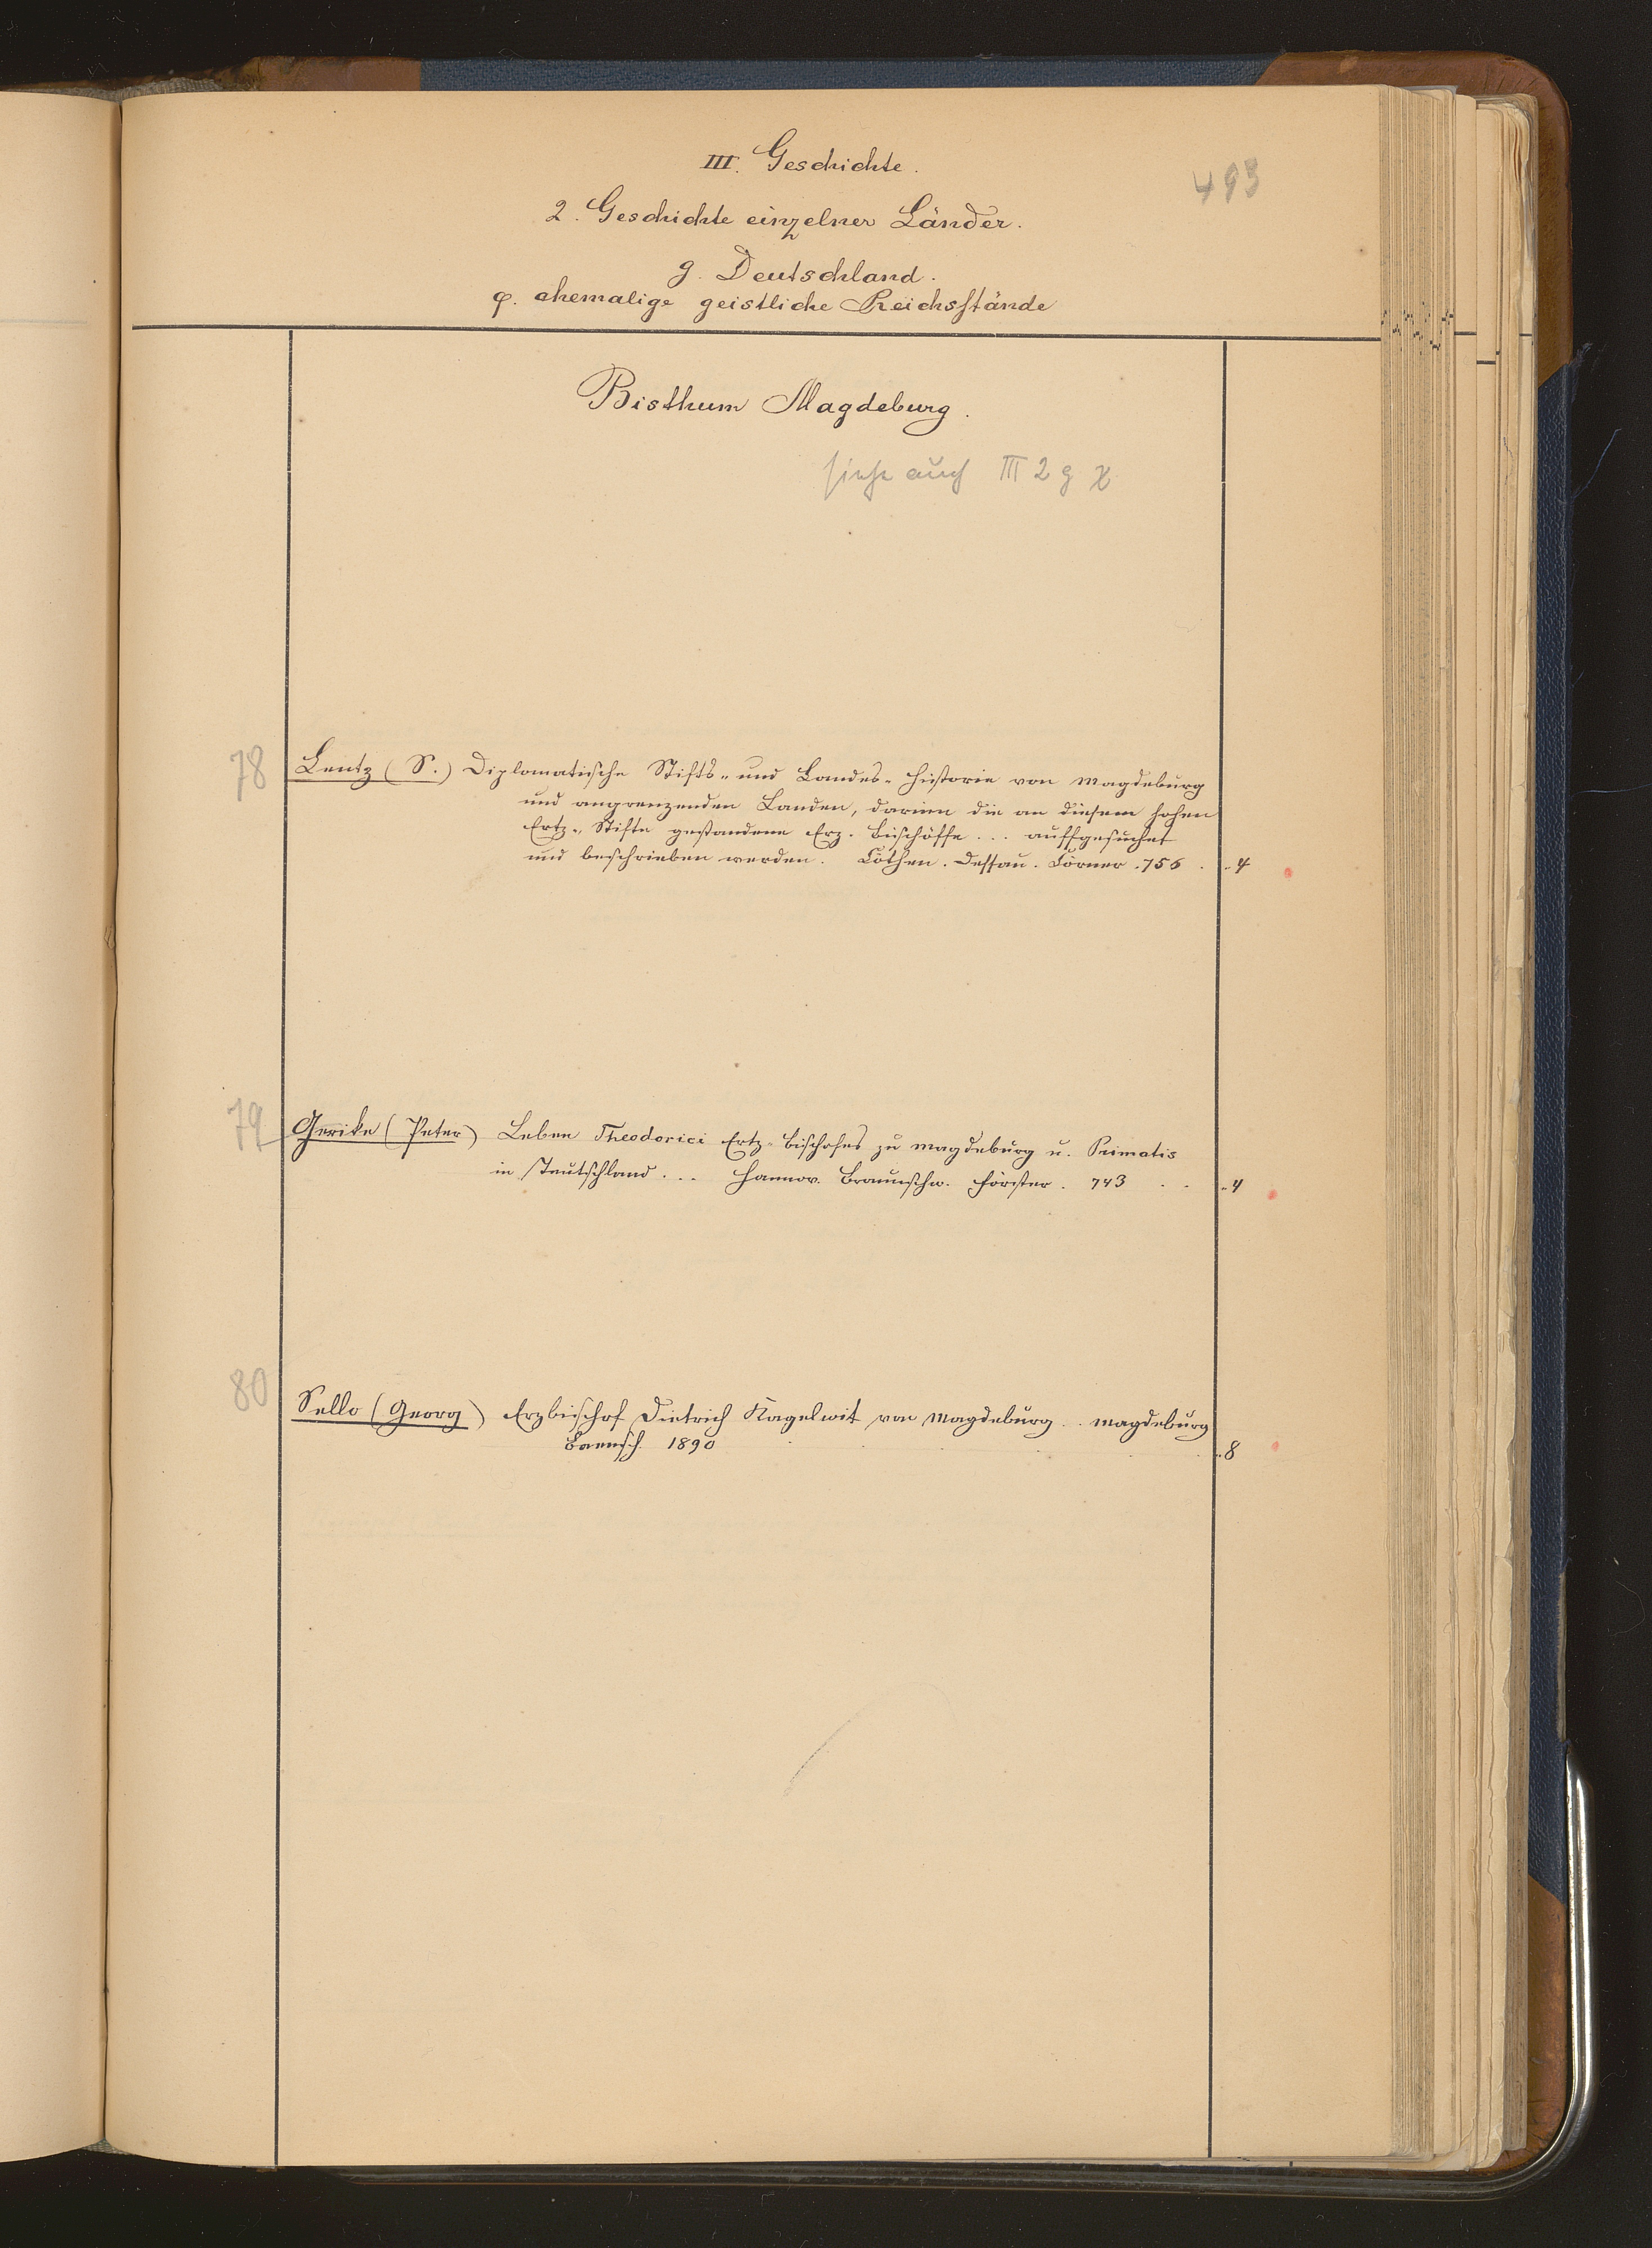 III. Geschichte.
493
2. Geschichte einzelner Länder.
g. Deutschland.
φ. ehemalige geistliche Reichsstände
Bisthum Magdeburg.
siehe auch III 2 g χ
78
Lentz (S.) Diplomatische Stifts- und Landes-Historie von Magdeburg
und angrenzenden Landen, darinn die an diesem hohen
Ertz-Stifte gestandene Erz-Bischöffe ... auffgesuchet
und beschrieben werden. Cöthen. Dessau. Cörner. 756 . .. 4
79
Gerike (Peter) Leben Theodorici Ertz-Bischofes zu Magdeburg u. Primatis
in Teutschland ... Hannov. Braunschw. Förster. 743 . . .. 4
80
Sello (Georg) Erzbischof Dietrich Kagelwit von Magdeburg. Magdeburg
Baensch. 1890 . . . . .. 8